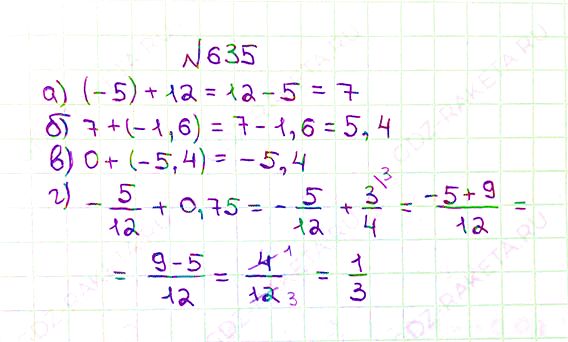 №635
а) (-5) + 12 = 12 - 5 = 7
б) 7 + (-1,6) = 7 - 1,6 = 5,4
в) 0 + (-5,4) = -5,4
г) - 5/12 + 0,75 = - 5/12 + 3/4 \3 = (-5 + 9)/12 =
= (9 - 5)/12 = 4 1/12 3 = 1/3
GDZ-RAKETA.RU